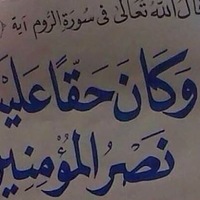 قال الله تعالى في سورة الروم آية
وَكَانَ حَقًّا عَلَيْ
نَصْرُ الْمُؤْمِنِينَ